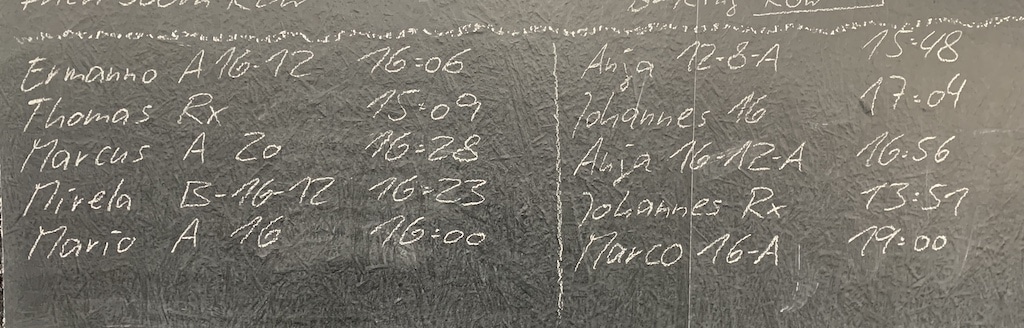 Row
Row
Ermanno A 16-12 16:06
Thomas Rx 15:09
Marcus A 20 16:28
Mirela B-16-12 16:23
Mario A 16 16:00
Anja 12-8-A 15:48
Johannes 16 17:04
Anja 16-12-A 16:56
Johannes Rx 13:51
Marco 16-A 19:00